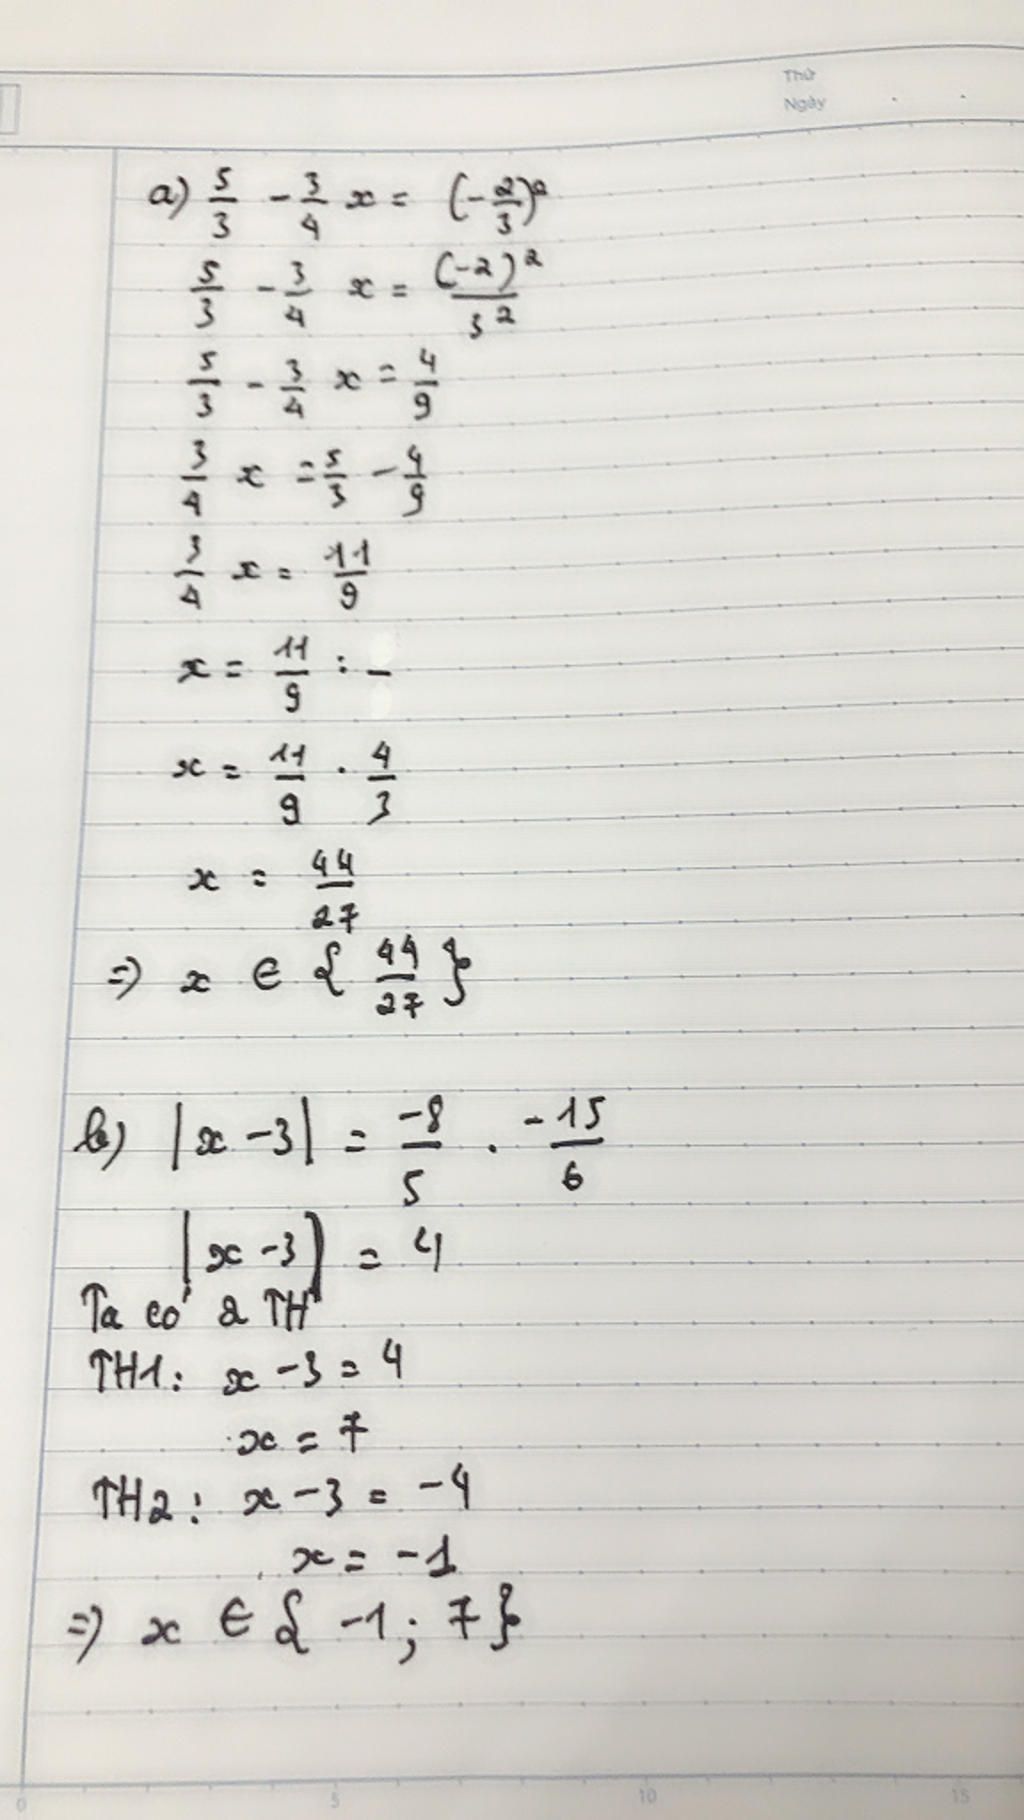 Thứ
Ngày
a) 5/3 - 3/4 x = (-2/3)²
5/3 - 3/4 x = (-2)²/3²
5/3 - 3/4 x = 4/9
3/4 x = 5/3 - 4/9
3/4 x = 11/9
x = 11/9 : –
x = 11/9 . 4/3
x = 44/27
=> x ∈ { 44/27 }
b) |x - 3| = -8/5 . -15/6
|x - 3| = 4
Ta có 2 TH
TH1: x - 3 = 4
x = 7
TH2: x - 3 = -4
x = -1
=> x ∈ { -1 ; 7 }
0 5 10 15